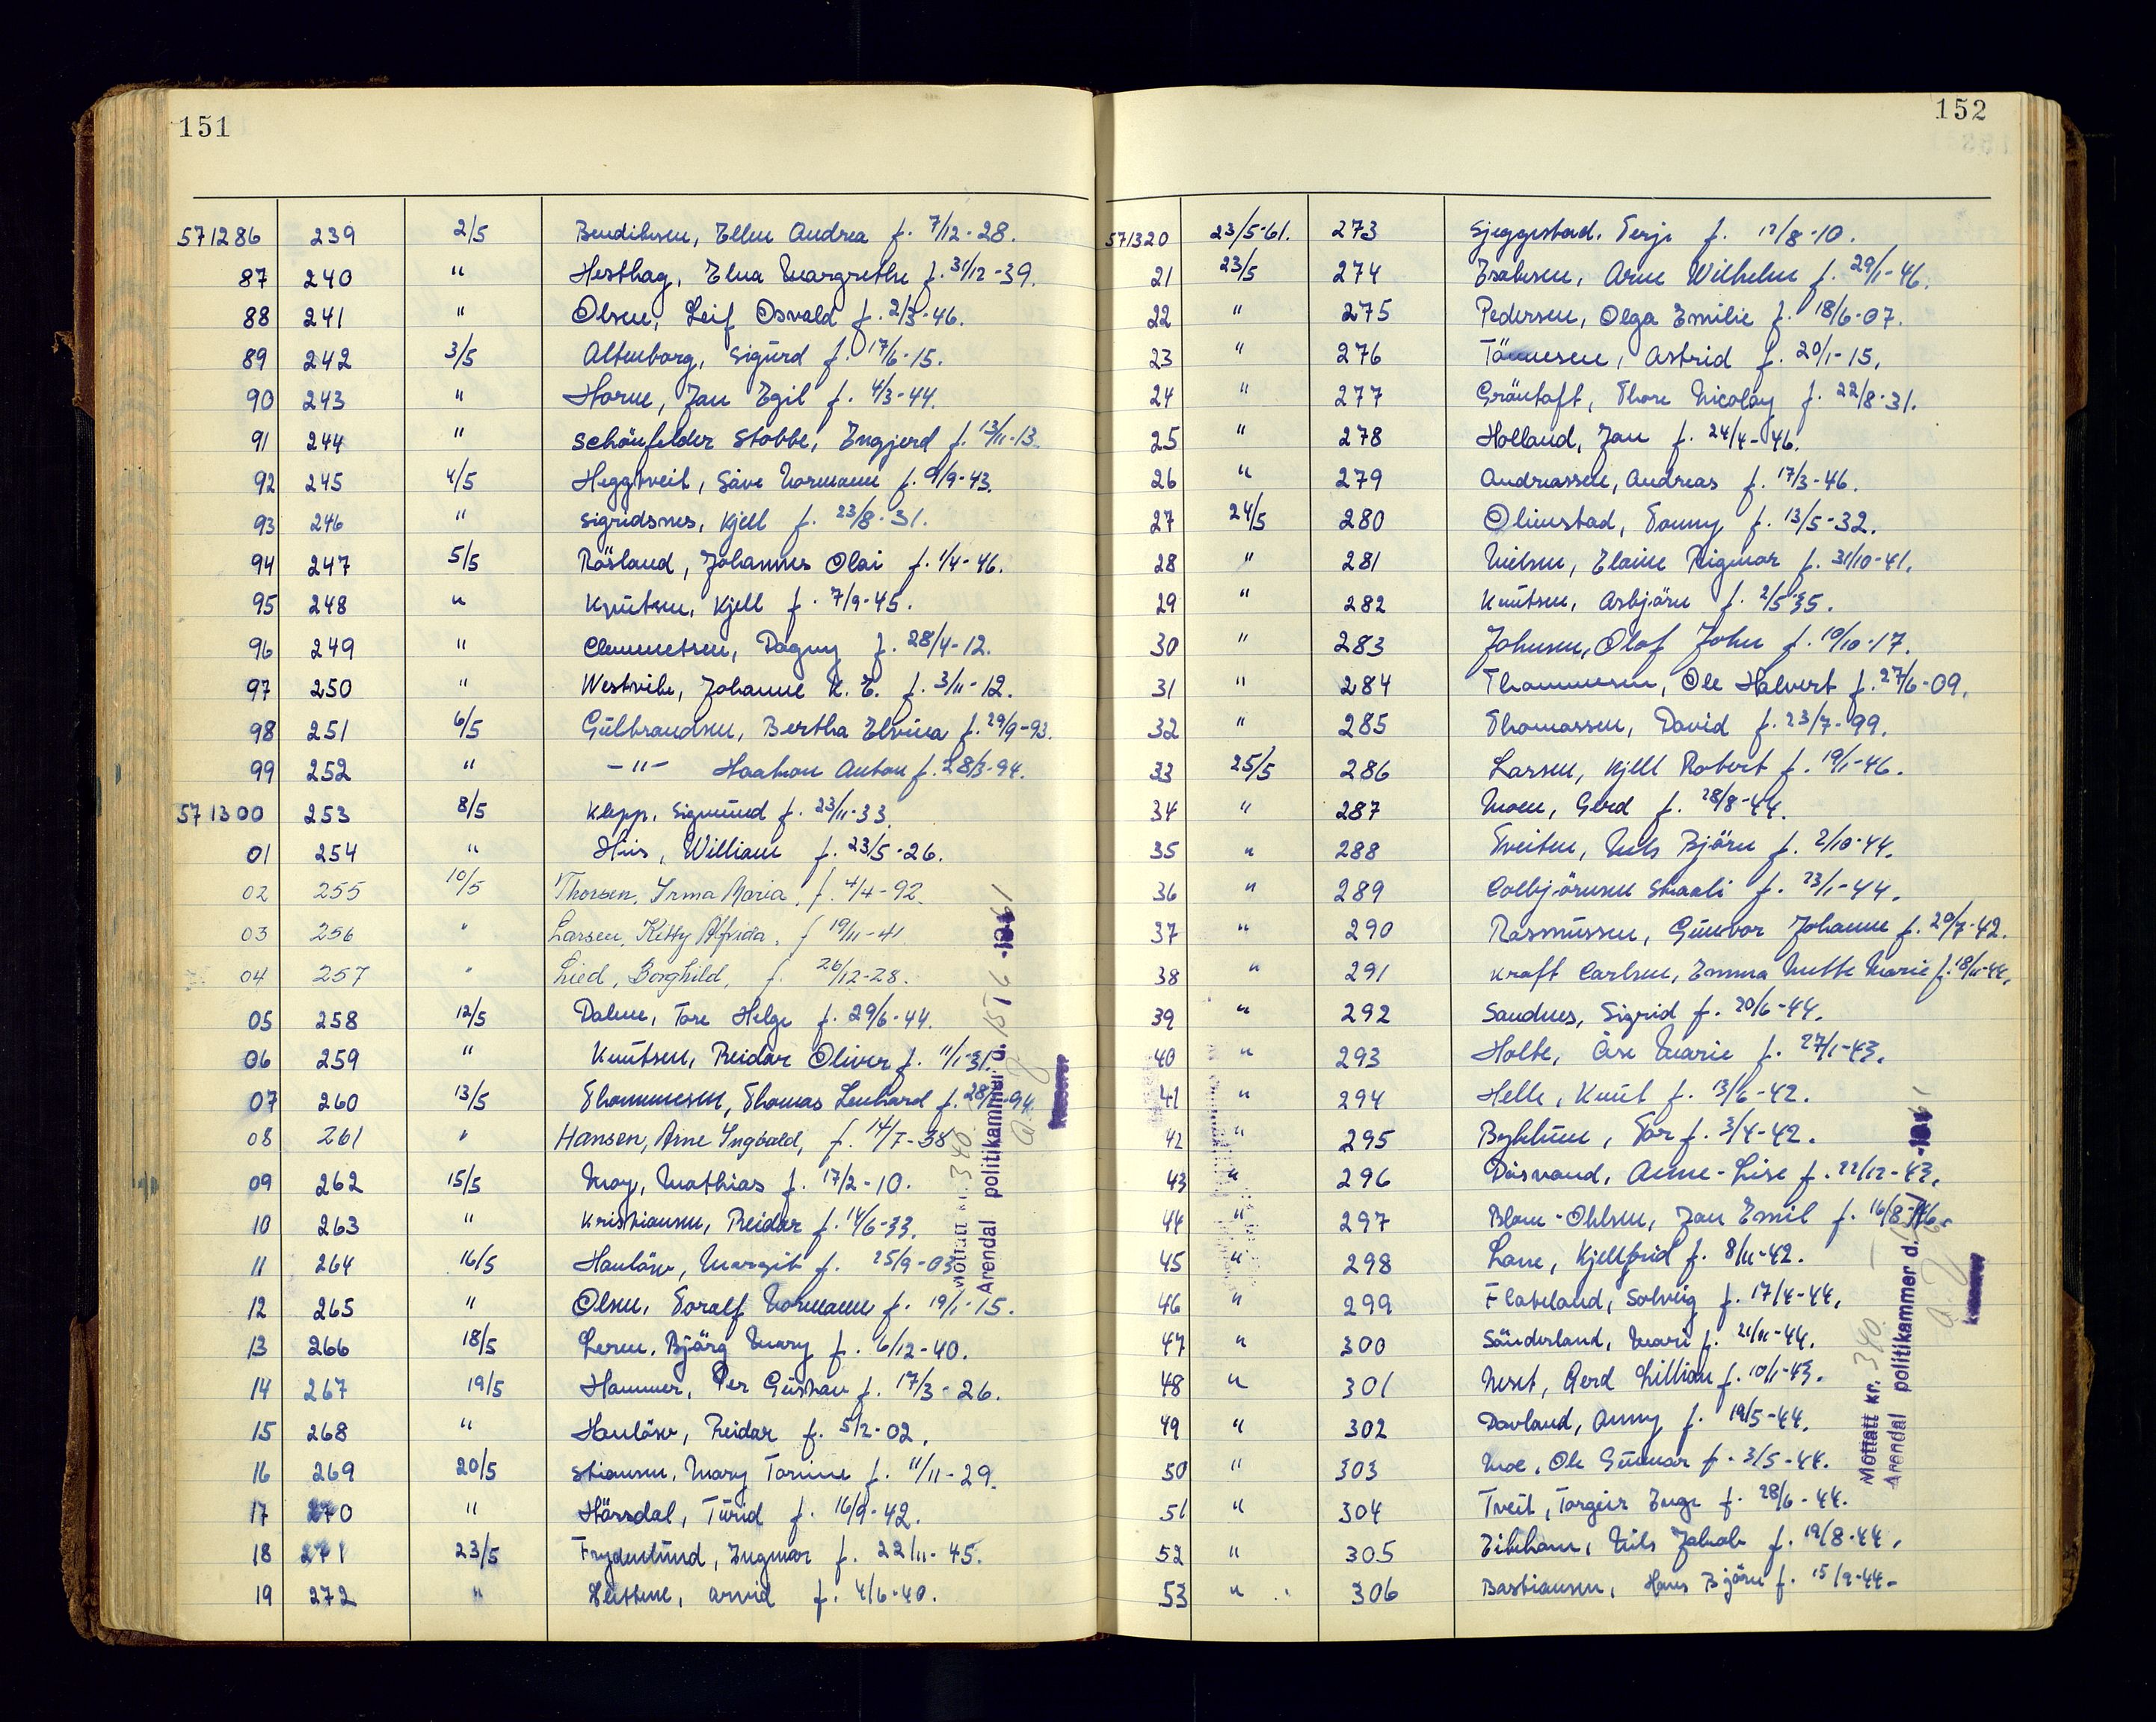 151
571286 239 2/5 Bendiksen, Ellen Andrea f. 7/12-28.
87 240 " Hesthag, Elna Margrethe f. 31/12-39.
88 241 " Olsen, Leif Osvald f. 2/3-46.
89 242 3/5 Altenborg, Sigurd f. 17/6-15.
90 243 " Horne, Jan Egil f. 4/3-44.
91 244 " Schönfelder Stabbe, Ingjerd f. 13/11-13.
92 245 4/5 Heggtveit, Save Normann f. 9/9-43.
93 246 " Sigridsnes, Kjell f. 23/8-31.
94 247 5/5 Røsland, Johannes Olai f. 1/4-46.
95 248 " Knutsen, Kjell f. 7/9-45.
96 249 " Clemmetsen, Dagny f. 28/4-12.
97 250 " Westvik, Johanne K. E. f. 3/11-12.
98 251 6/5 Gulbrandsen, Bertha Elvina f. 29/9-93.
99 252 " -"- Haakon Anton f. 28/3-94.
571300 253 8/5 Klepp, Sigmund f. 23/11-33.
01 254 " Hiis, William f. 23/5-26.
02 255 10/5 Thorsen, Irma Maria, f. 4/4-92.
03 256 " Larsen, Kitty Alfrida, f 19/11-41
04 257 " Lied, Borghild, f. 26/12-28.
05 258 12/5 Dalene, Tore Helge f. 29/6-44.
06 259 " Knutsen, Reidar Oliver f. 11/1-31.
07 260 13/5 Thommesen, Thomas Lenhard f. 28/-94.
08 261 " Hansen, Arne Ingvald, f. 14/7-38
09 262 15/5 Moy, Mathias f. 17/2-10.
10 263 " Kristiansen, Reidar f. 14/6-33.
11 264 16/5 Hanløse, Margit f. 25/9-03
12 265 " Olsen, Toralf Normann f. 19/1-15.
13 266 18/5 Lerne, Bjørg Mary f. 6/12-40.
14 267 19/5 Hammer, Per Gustav f. 17/3-26.
15 268 " Hanløse, Reidar f. 5/2-02.
16 269 20/5 Stiansen, Mary Torine f. 11/11-29.
17 270 " Hårsdal, Turid f. 16/9-42.
18 271 23/5 Frydenlund, Ingmar f. 22/11-45.
19 272 " Arvid f. 4/6-40.
Mottatt kr. 340
Arendal politikammer d. 15/6 -1961
Kasserer
152
571320 23/5-61. 273 Gjeggestad, Terje f. 12/8-10.
21 23/5 274 Isaksen, Arne Wilhelm f. 29/1-46.
22 " 275 Pedersen, Olga Emilie f. 18/6-07.
23 " 276 Tønnesen, Astrid f. 20/1-15.
24 " 277 Grøntoft, Thore Nicolay f. 22/8-31.
25 " 278 Holland, Jan f. 24/4-46.
26 " 279 Andreassen, Andreas f. 17/3-46.
27 24/5 280 Olimstad, Tommy f. 13/5-32.
28 " 281 Nielsen, Elaine Rigmor f. 31/10-41.
29 " 282 Knutsen, Asbjørn f. 2/5-35.
30 " 283 Johnsen, Olof John f. 10/10-17.
31 " 284 Thommesen, Ole Halvert f. 27/6-09.
32 " 285 Thomassen, David f. 23/7-99.
33 25/5 286 Larsen, Kjell Robert f. 19/1-46.
34 " 287 Moen, Gerd f. 28/8-44.
35 " 288 Tveiten, Nils Bjørn f. 2/10-44.
36 " 289 Colbjørnsen Skaali f. 23/1-44.
37 " 290 Rasmussen, Gunvor Johanne f. 20/7-42.
38 " 291 Kraft Carlsen, Emma Mette Marie f. 18/11-44.
39 " 292 Sandnes, Sigrid f. 20/6-44.
40 " 293 Holte, Åse Marie f. 27/1-43.
41 " 294 Helle, Knut f. 13/6-42.
42 " 295 Byklum, Tor f. 3/4-42.
43 " 296 Døsvand, Anne-Lise f. 22/12-43.
44 " 297 Blom-Ohlsen, Jan Emil f. 16/8-
45 " 298 Lane, Kjellfrid f. 8/11-42.
46 " 299 Flateland, Solveig f. 17/4-44.
47 " 300 Sønderland, Mari f. 21/11-44.
48 " 301 Neset, Gerd Lillian f. 10/1-43.
49 " 302 Dovland, Anny f. 19/5-44.
50 " 303 Moe, Ole Gunnar f. 3/5-44.
51 " 304 Tveit, Torgeir Inge f. 28/6-44.
52 " 305 Nils Jakob f. 19/8-44.
53 " 306 Bastiansen, Hans Bjørn f. 15/9-44-
Mottatt kr. 340.-
Arendal politikammer d. 1961
Kasserer